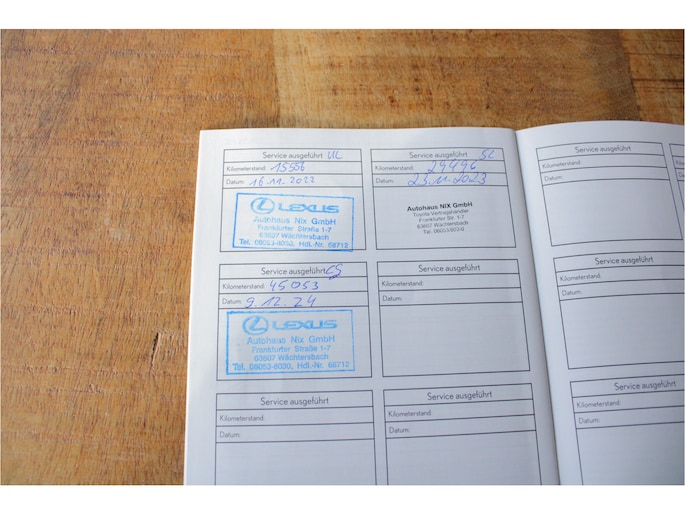 Service ausgeführt UL
Kilometerstand: 15556
Datum: 16.11.2022
LEXUS
Autohaus Nix GmbH
Frankfurter Straße 1-7
63607 Wächtersbach
Tel. 06053-8030, Hdl.-Nr. 68712
Service ausgeführt SL
Kilometerstand: 29496
Datum: 23.11.2023
Autohaus NIX GmbH
Toyota Vertragshändler
Frankfurter Str. 1-7
63607 Wächtersbach
Tel. 06053/803-0
Service ausgeführt CS
Kilometerstand: 45053
Datum: 9.12.24
LEXUS
Autohaus Nix GmbH
Frankfurter Straße 1-7
63607 Wächtersbach
Tel. 06053-8030, Hdl.-Nr. 68712
Service ausgeführt
Kilometerstand:
Datum:
Service ausgeführt
Kilometerstand:
Datum:
Service ausgeführt
Kilometerstand:
Datum:
Service ausgeführt
Kilometerstand:
Datum:
Service ausgeführt
Kilometerstand:
Datum:
Service ausgeführt
Kilometerstand:
Datum: